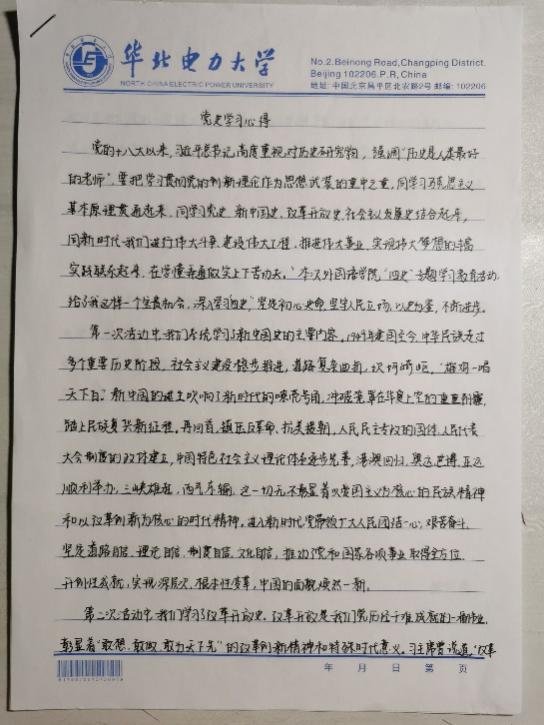 华北电力大学
NORTH CHINA ELECTRIC POWER UNIVERSITY
No.2.Beinong Road,Changping District.
Beijing 102206.P.R,China
地址: 中国北京昌平区北农路2号 邮编: 102206
党史学习心得
党的十八大以来,习近平总书记高度重视对历史研究,强调“历史是人类最好
的老师”,要把学习贯彻党的创新理论作为思想武装的重中之重,同学习马克思主义
基本原理贯通起来,同学习党史、新中国史、改革开放史、社会主义发展史结合起来,
同新时代我们进行伟大斗争、建设伟大工程、推进伟大事业、实现伟大梦想的丰富
实践联系起来,在学懂弄通做实上下苦功夫。本次外国语学院“四史”专题学习教育活动,
给了我这样一个宝贵机会,深入学习四史,坚定初心使命,坚守人民立场,以史为鉴,不断进步。
第一次活动中,我们系统学习了新中国史的主要内容。1949年建国至今,中华民族走过
多个重要历史阶段,社会主义建设稳步推进,道路复杂曲折,坎坷崎岖。“雄鸡一唱
天下白。”新中国的建立吹响了新时代的嘹亮号角,冲破笼罩在华夏上空的重重阴霾,
踏上民族复兴新征程。再回首,镇压反革命、抗美援朝,人民民主专政的国体、人民代表
大会制度的政体建立,中国特色社会主义理论体系逐步完善,港澳回归,奥运、世博、亚运
顺利举办,三峡雄起,西气东输,这一切无不彰显着以爱国主义为核心的民族精神
和以改革创新为核心的时代精神。进入新时代,党带领广大人民团结一心,艰苦奋斗,
坚定道路自信、理论自信、制度自信、文化自信,推动党和国家各项事业取得全方位、
开创性成就,实现深层次、根本性变革,中国的面貌焕然一新。
第二次活动中,我们学习了改革开放史。改革开放是我们党历经千难成就的一番伟业,
彰显着“敢想、敢做、敢为天下先”的改革创新精神和特殊时代意义。习主席曾说道,“改革
年 月 日 第 页